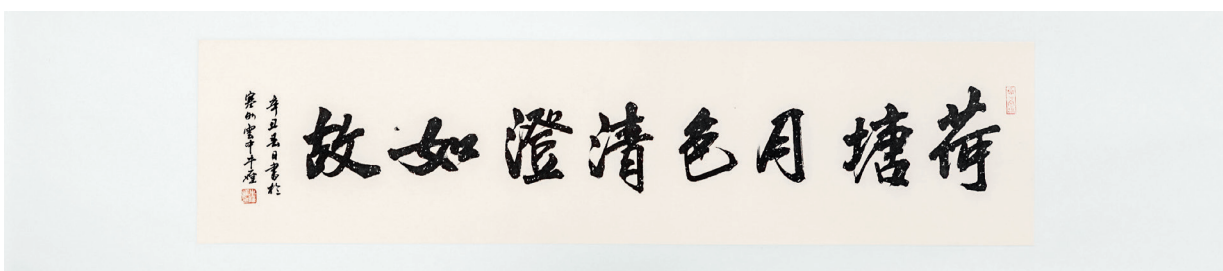 荷塘月色清澄如故
辛丑春日書於
寒山雲中斗